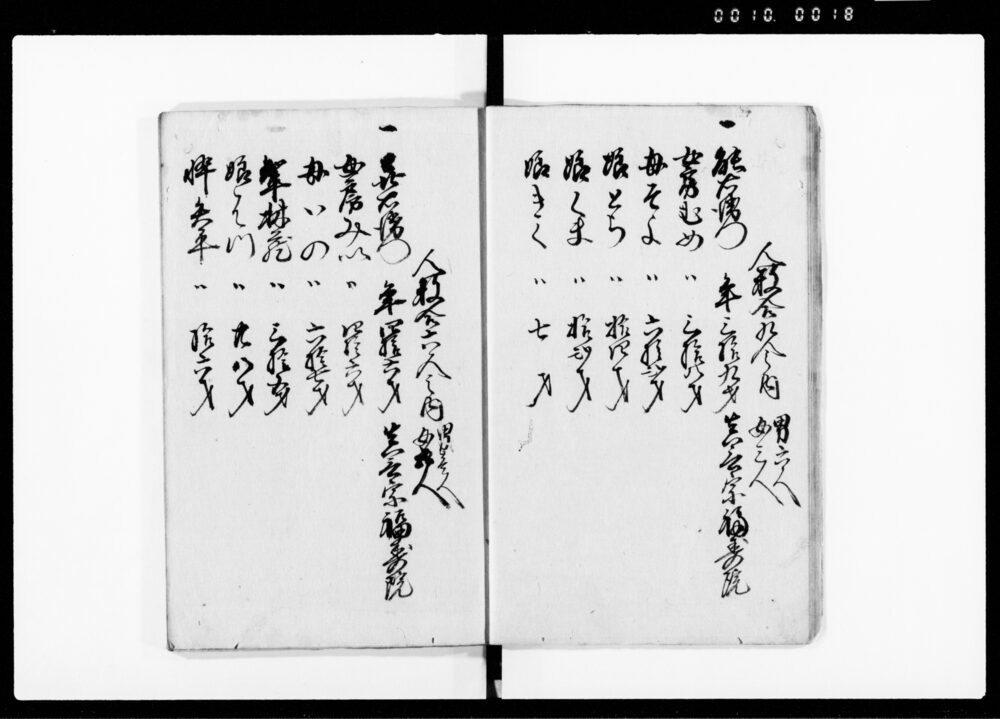 0010. 0018
人数合九人之内 男六人
女三人
一 右衛門 年三拾九才 真言宗福寿院
女房むめ 〃 三拾八才
母そよ 〃 六拾才
娘とら 〃 拾四才
娘くま 〃 拾弐才
娘きく 〃 七才
人数合六人之内 男壱人
女五人
一 喜右衛門 年四拾六才 真言宗福寿院
女房みい 〃 四拾六才
母いの 〃 六拾七才
林蔵 〃 三拾五才
娘はつ 〃 廿八才
忰兵平 〃 拾六才